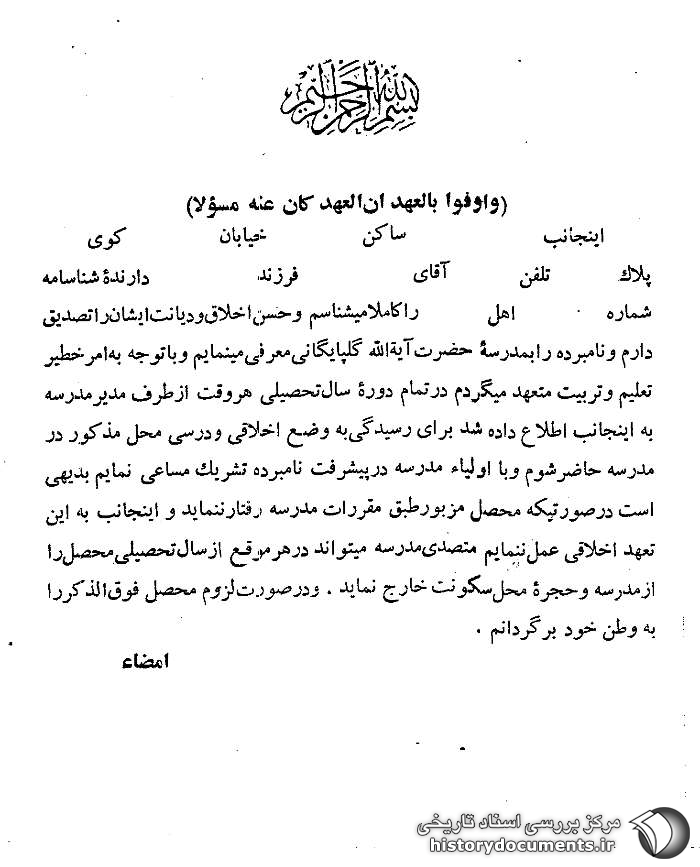 بسم الله الرحمن الرحیم
(واوفوا بالعهد ان العهد كان عنه مسؤلا)
اینجانب ساكن خیابان كوی
پلاك تلفن آقای فرزند دارندهٔ شناسامه
شماره اهل راكاملا میشناسم وحسن اخلاق ودیانت ایشان راتصدیق
دارم ونامبرده رابمدرسهٔ حضرت آیةالله گلپایگانی معرفی مینمایم وباتوجه به امرخطیر
تعلیم وتربیت متعهد میگردم درتمام دورهٔ سال تحصیلی هروقت ازطرف مدیرمدرسه
به اینجانب اطلاع داده شد برای رسیدگی به وضع اخلاقی ودرسی محل مذكور در
مدرسه حاضرشوم وبا اولیاء مدرسه درپیشرفت نامبرده تشریك مساعی نمایم بدیهی
است درصورتیكه محصل مزبورطبق مقررات مدرسه رفتارننماید و اینجانب به این
تعهد اخلاقی عمل ننمایم متصدی مدرسه میتواند درهرموقع ازسال تحصیلی محصل را
ازمدرسه وحجرهٔ محل سكونت خارج نماید . ودرصورت لزوم محصل فوق الذكررا
به وطن خود برگردانم .
امضاء
مركز بررسی اسناد تاریخی
historydocuments.ir